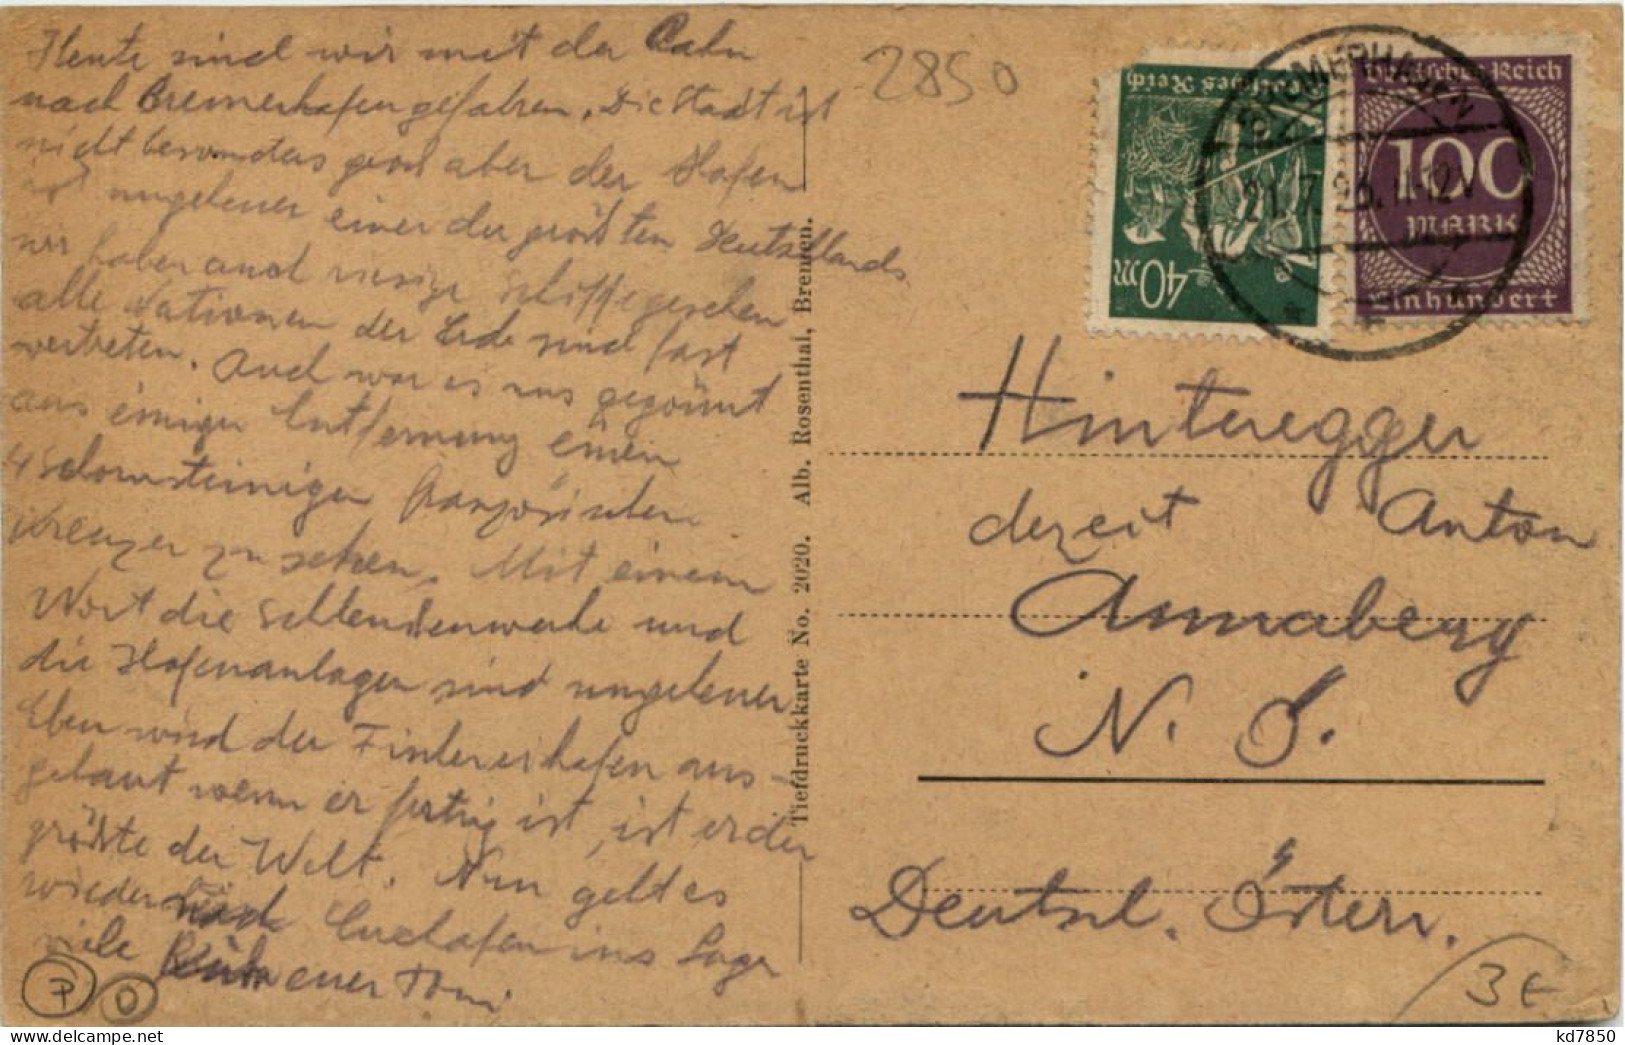 Heute sind wir mit der Bahn
nach Bremerhafen gefahren. Die Stadt ist
nicht besonders groß aber der Hafen
ist ungeheuer einer der größten Deutschlands
wir haben auch riesige Schiffe gesehen
alle Nationen der Erde sind fast
vertreten. Auch war es uns gegönnt
aus einiger Entfernung einen
4 schornsteinigen französischen
Kreuzer zu sehen. Mit einem
Wort die Schleusenwerke und
die Hafenanlagen sind ungeheuer
Eben wird der Fischereihafen aus-
gebaut wenn er fertig ist, ist er der
größte der Welt. Nun geht es
wieder nach Cuxhafen ins Lager
viele Grüße euer Toni
P O
Tiefdruckkarte No. 2020. Alb. Rosenthal, Bremen.
2850
Deutsches Reich
40M
BREMERHAVEN
21.7.23.11-12V
Deutsches Reich
100
MARK
Einhundert
Hinteregger
derzeit Anton
Annaberg
N. Ö.
Deutschl. Österr.
3€
kd7850